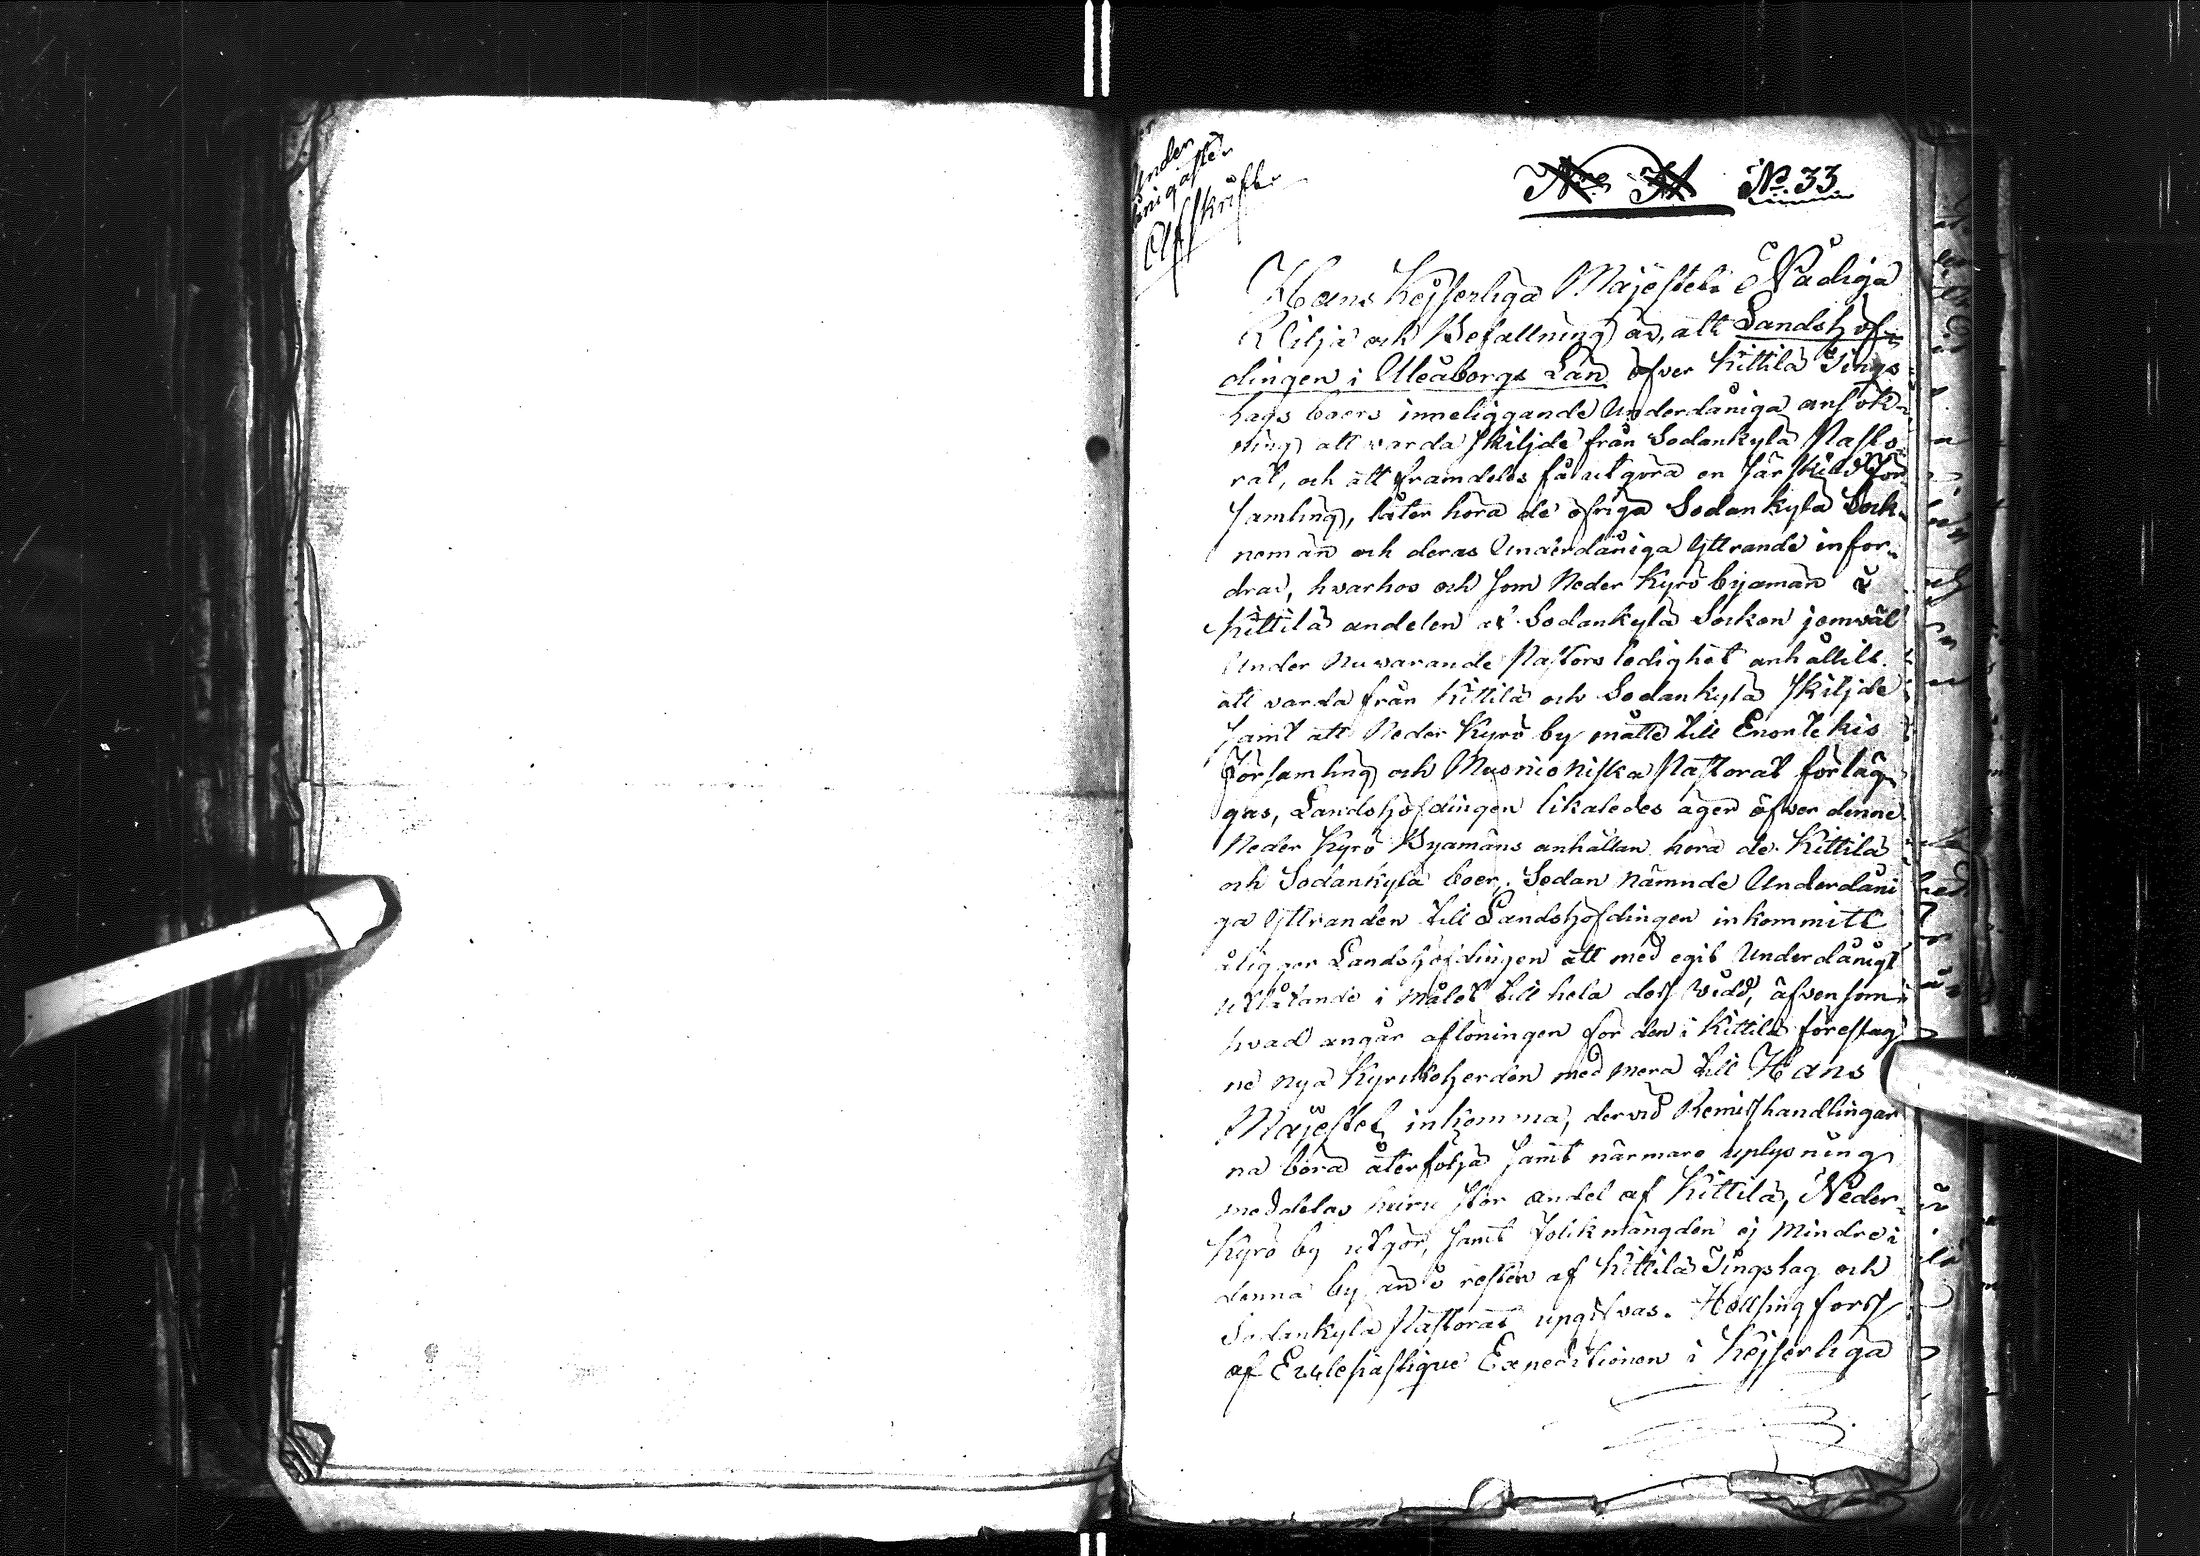 Under
dånigaste
Afskrifter
N:o 33.
Hans Kejserliga Majestets Nådiga
Wilja och Befallning är, att Landshöf-
dingen i Uleåborgs Län öfver Kittilä Tings-
lags boers inneliggande Underdåniga ansök-
ning att varda skiljde från Sodankylä Pasto-
rat, och att framdeles få utgöra en särskild För
samling, låter höra de öfriga Sodankylä Sock-
nemän och deras Underdåniga Yttrande infor-
drar, hvarhos och som Neder Kyrö byamän i
Kittilä andelen af Sodankylä Socken jemväl
Under Nuvarande Pastors ledighet anhållit
att varda från Kittilä och Sodankylä skiljde
samt att Neder Kyrö by måtte till Enontekis
Församling och Muonioniska Pastorat förläg
gas, Landshöfdingen likaledes äger öfver denne
Neder Kyrö Byamäns anhållan höra de Kittilä
och Sodankylä boer. Sedan nämnde Underdåni
ga Yttranden till Landshöfdingen inkommitt
åligger Landshöfdingen att med egit Underdånigt
utlåtande i målet till hela dess vidd, äfvensom
hvad angår aflöningen för den i Kittilä föreslag
ne nya Kyrkoherden med mera till Hans
Majestet inkomma, dervid Remisshandlingar
na böra återfölja samt närmare uplysning
meddelas huru stor andel af Kittilä, Neder-
Kyrö by utgör, samt folkmängden ej mindre i
denna by än i resten af Kittilä Tingslag och
Sodankylä Pastorat upgifvas. Helsingfors
af Ecclesiastique Expeditionen i Kejserliga